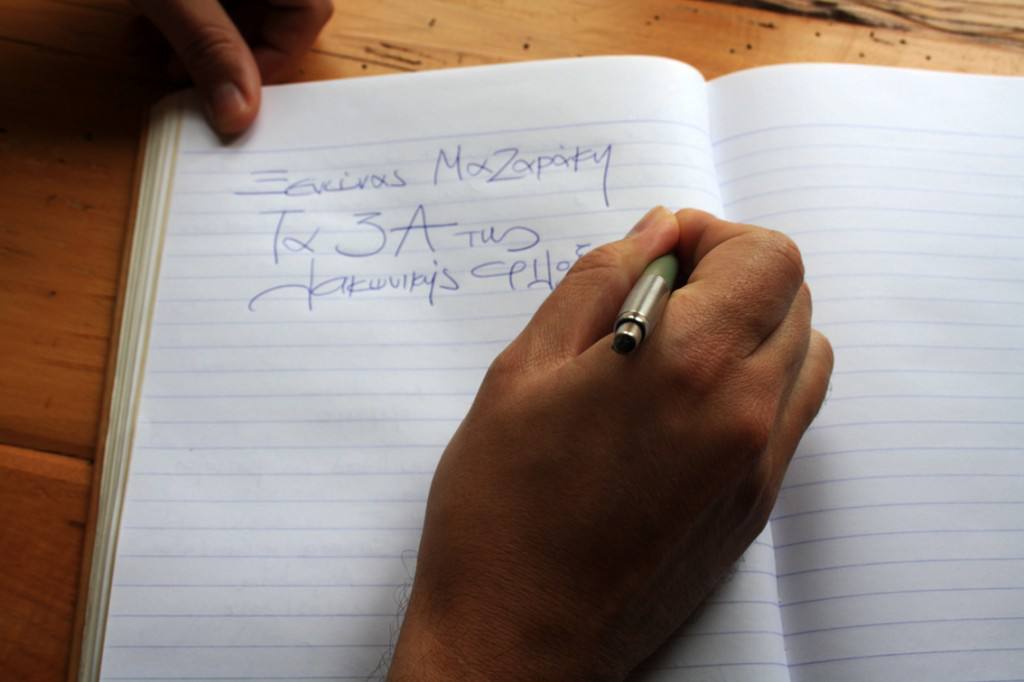 Ξεκινάς Μαζαράκη
Τα 3 Α της
Λακωνικής